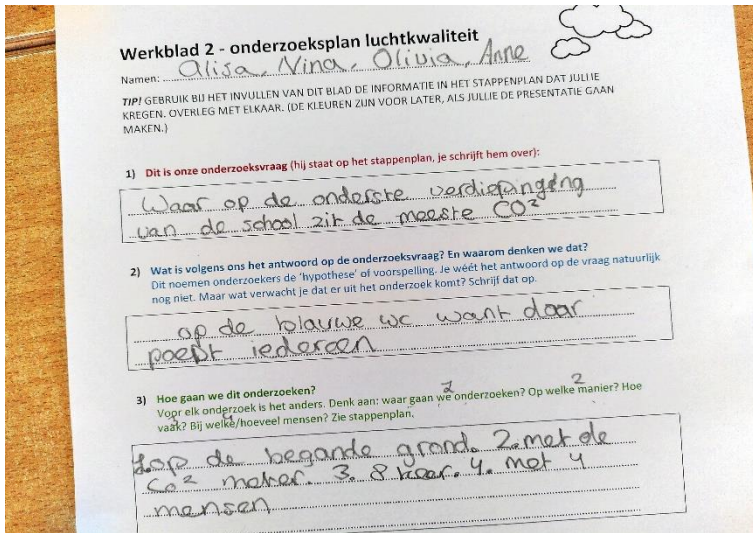 Werkblad 2 - onderzoeksplan luchtkwaliteit
Namen: Alisa, Nina, Olivia, Anne
TIP! GEBRUIK BIJ HET INVULLEN VAN DIT BLAD DE INFORMATIE IN HET STAPPENPLAN DAT JULLIE
KREGEN. OVERLEG MET ELKAAR. (DE KLEUREN ZIJN VOOR LATER, ALS JULLIE DE PRESENTATIE GAAN
MAKEN.)
1) Dit is onze onderzoeksvraag (hij staat op het stappenplan, je schrijft hem over):
Waar op de onderste verdiepingeng
van de school zit de meeste CO²
2) Wat is volgens ons het antwoord op de onderzoeksvraag? En waarom denken we dat?
Dit noemen onderzoekers de 'hypothese' of voorspelling. Je wéét het antwoord op de vraag natuurlijk
nog niet. Maar wat verwacht je dat er uit het onderzoek komt? Schrijf dat op.
op de blauwe wc want daar
poept iedereen
3) Hoe gaan we dit onderzoeken?
1 2
Voor elk onderzoek is het anders. Denk aan: waar gaan we onderzoeken? Op welke manier? Hoe
3 4
vaak? Bij welke/hoeveel mensen? Zie stappenplan.
1. op de begande grond. 2. met de
Co² meter. 3. 8 keer. 4. met 4
mensen